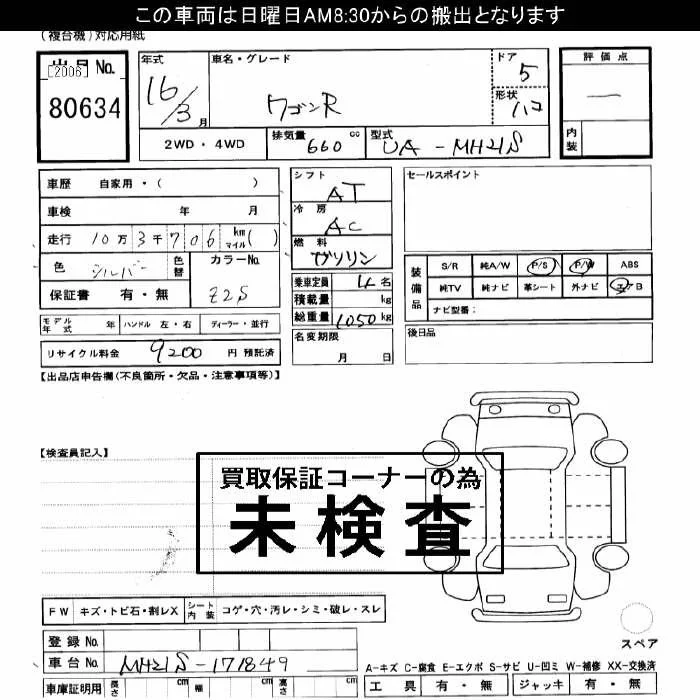 この車両は日曜日AM8:30からの搬出となります
(複合機)対応用紙
出品No. [2006]
80634
年式 16/3月
車名・グレード ワゴンR
ドア 5
形状 ハコ
評価点 ―
内装
2WD・4WD
排気量 660 cc
型式 UA-MH21S
車歴 自家用・( )
車検 年 月
走行 10万3千706 km マイル( )
色 シルバー 色替 カラーNo. Z2S
保証書 有・無
モデル年式 年 ハンドル 左・右 ディーラー・並行
リサイクル料金 9200 円 預託済
シフト AT
冷房 AC
燃料 ガソリン
乗車定員 4 名
積載量 kg
総重量 1050 kg
名変期限
月 日
セールスポイント
装備品
S/R 純A/W P/S P/W ABS
純TV 純ナビ 革シート 外ナビ エアB
ナビ型番:
後日品
【出品店申告欄(不良箇所・欠品・注意事項等)】
【検査員記入】
買取保証コーナーの為
未検査
FW キズ・トビ石・割レX シート内装 コゲ・穴・汚レ・シミ・破レ・スレ
登録No.
車台No. MH21S-171849
車庫証明用 長さ cm 幅 cm 高さ cm
スペア
A-キズ C-腐食 E-エクボ S-サビ U-凹ミ W-補修 XX-交換済
工具 有・無 ジャッキ 有・無